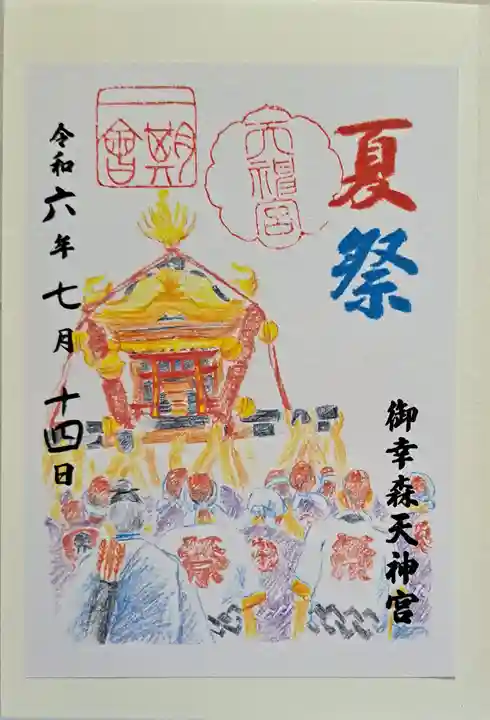 夏祭
御幸森天神宮
天神宮
一期
一會
令和六年七月十四日
祭
祭